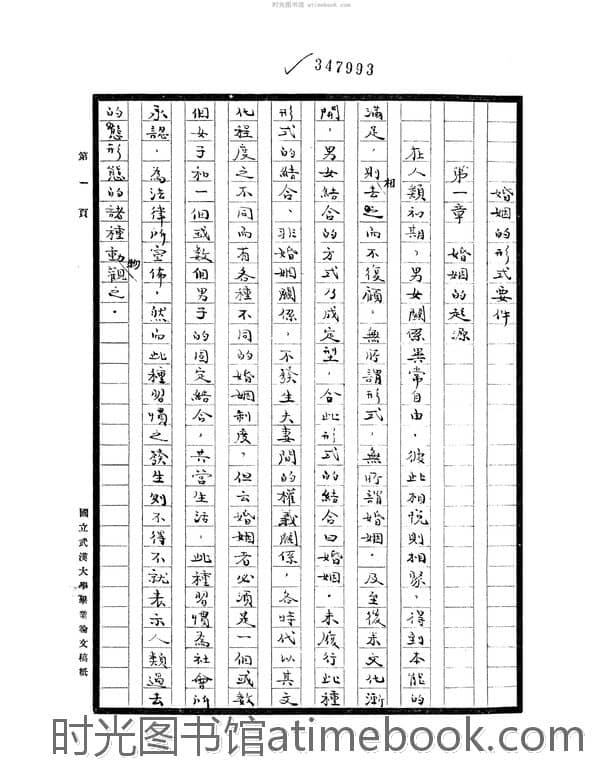 时光图书馆 atimebook.com
347993
婚姻的形式要件
第一章 婚姻的起源
在人類初期，男女關係異常自由，彼此相悅則相聚，得到本能的
滿足，則相去之而不復顧，無所謂形式，無所謂婚姻．及至後來文化漸
開，男女結合的方式乃成定型，合此形式的結合曰婚姻．未履行此種
形式的結合、非婚姻關係，不發生夫妻間的權義關係，各時代以其文
化程度之不同而有各種不同的婚姻制度，但云婚姻者必須是一個或數
個女子和一個或數個男子的固定結合，共营生活，此種習慣為社會所
承認，為法律所宣佈，然而此種習慣之發生則不得不就表示人類過去
的態形態的諸種動物觀之．
第一頁
國立武漢大學畢業論文稿紙
时光图书馆atimebook.com